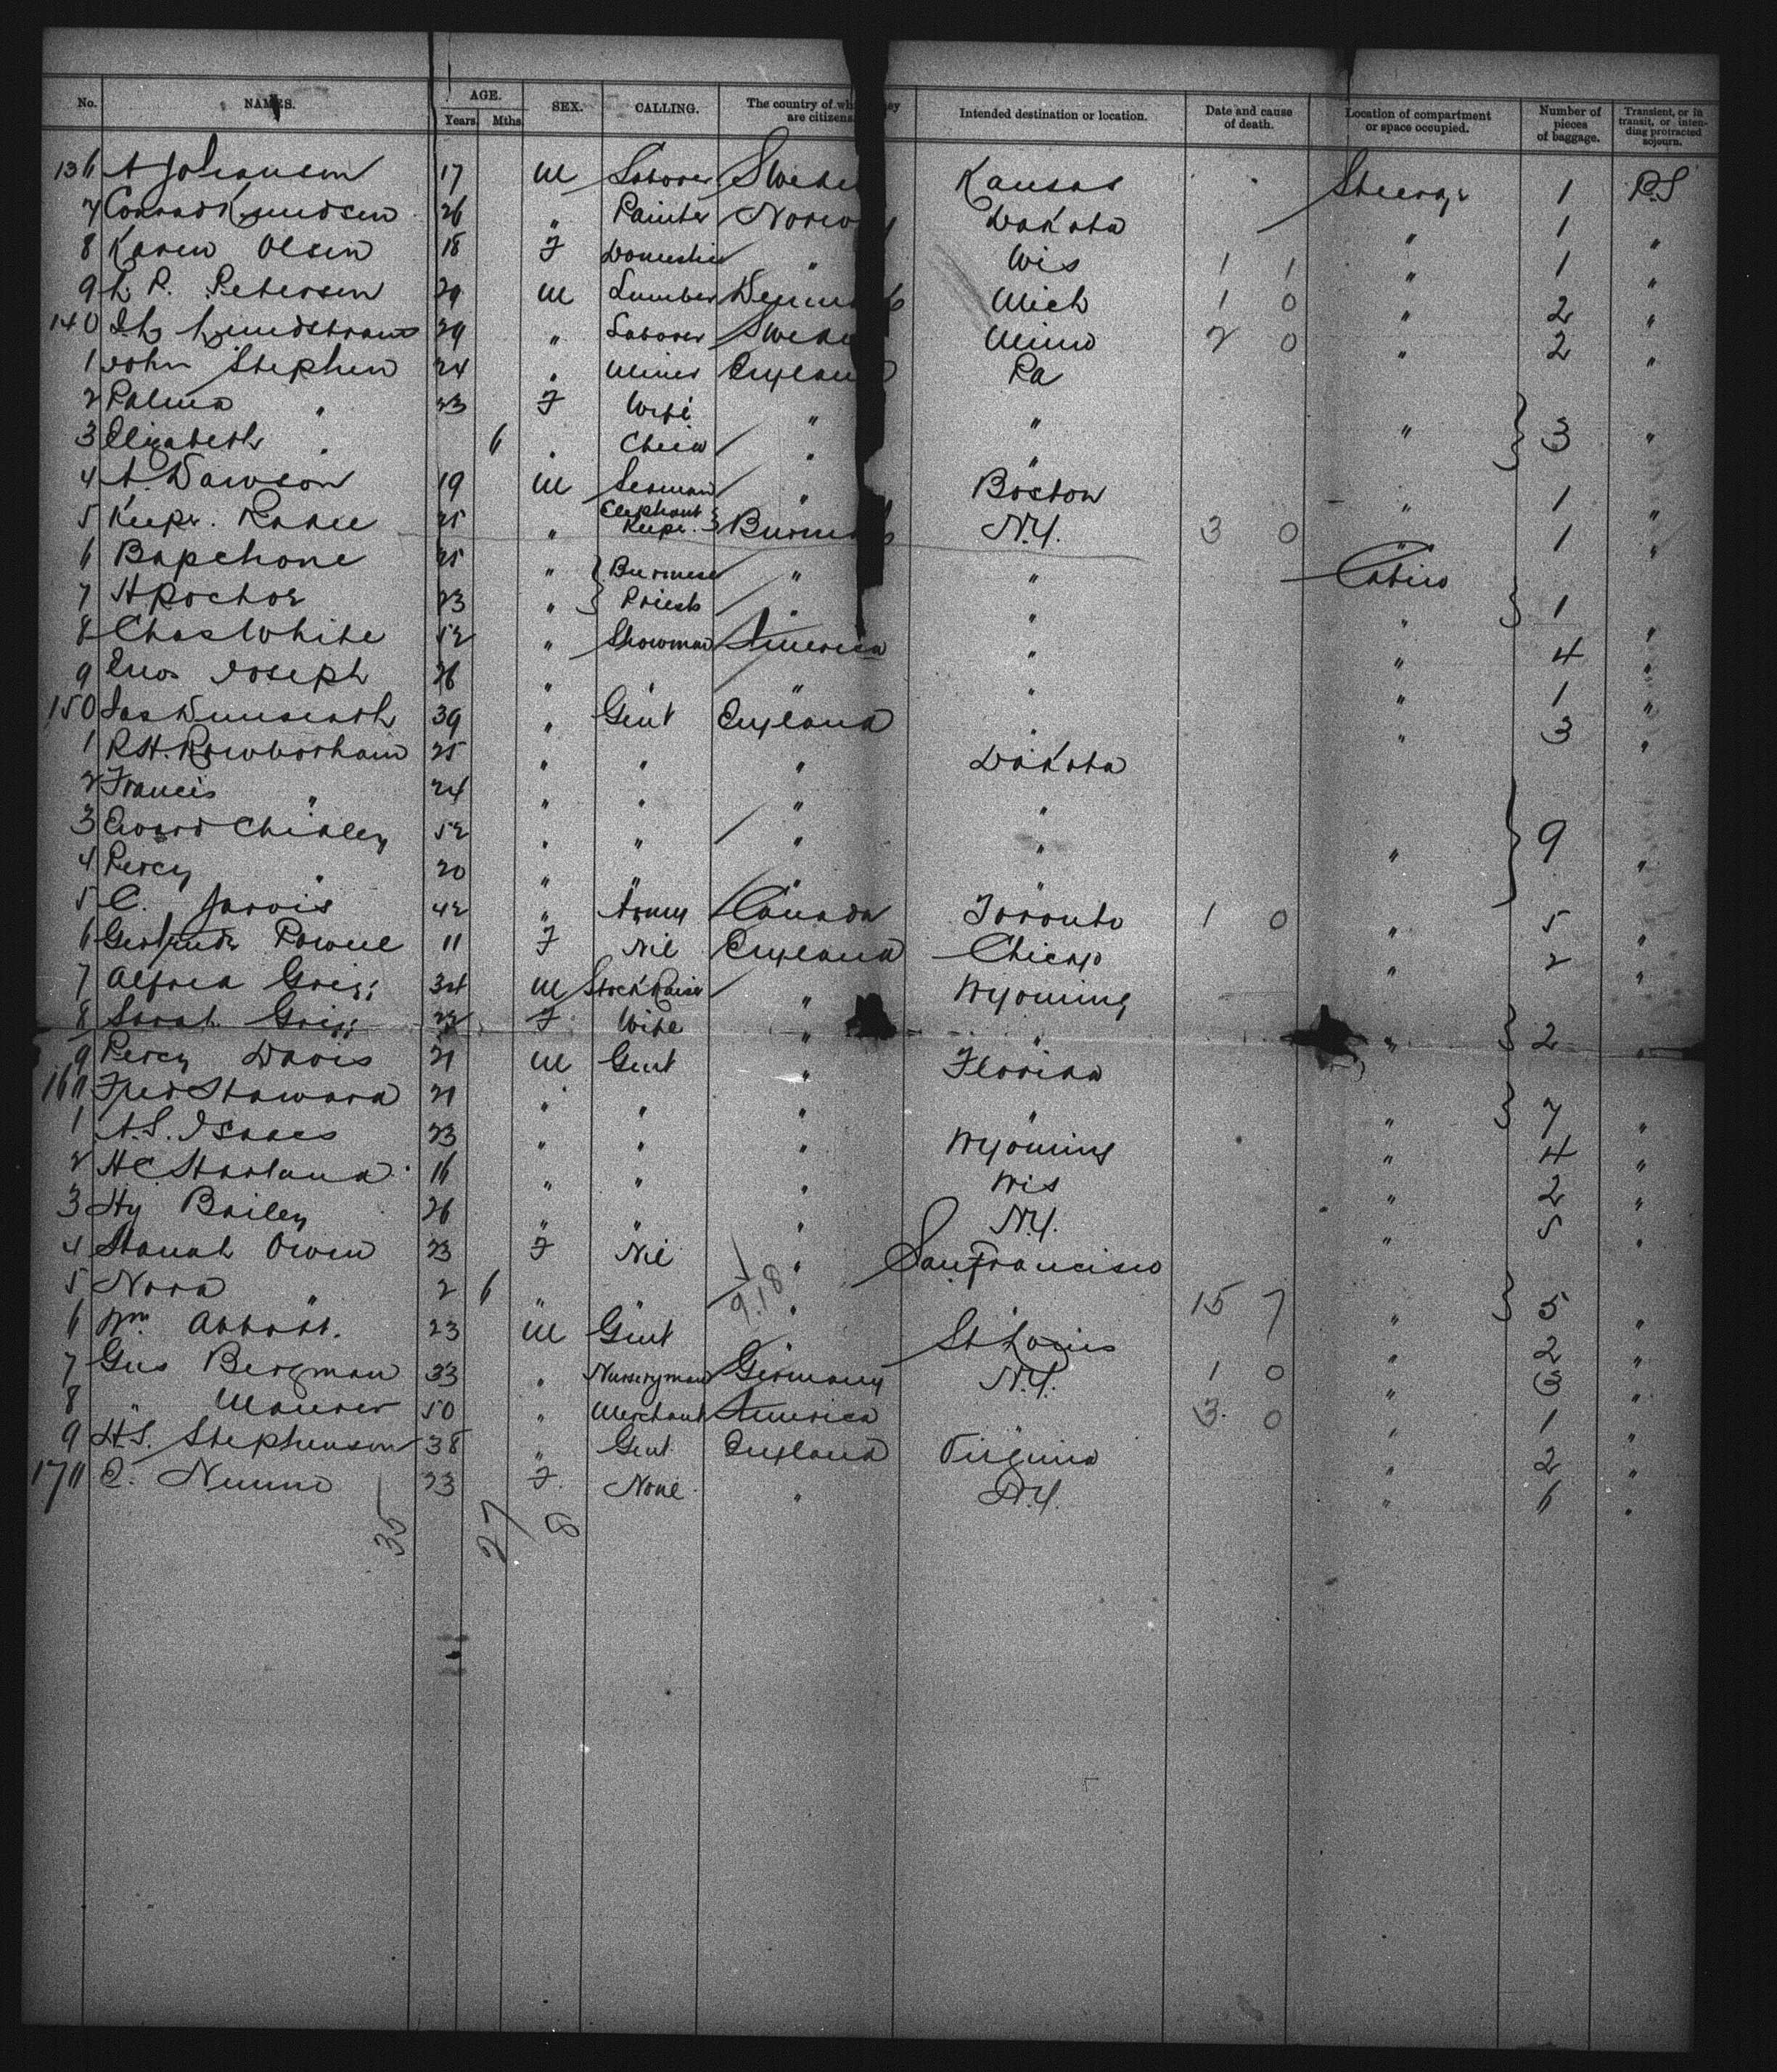 No. NAMES. AGE. Years. Mths. SEX. CALLING. The country of wh ey are citizens. Intended destination or location. Date and cause of death. Location of compartment or space occupied. Number of pieces of baggage. Transient, or in transit, or intending protracted sojourn.
136 A Johansen 17 M Laborer Swede Kansas Steerage 1 P.S
7 Conrad Knudsen 26 " Painter Norw y Dakota " 1 "
8 Karen Olsen 18 F Domestic " Wis 1 1 " 1 "
9 L. P. Petersen 29 M Lumber Denm k Mich 1 0 " 2 "
140 Lundstrom 29 " Laborer Swede Minn 2 0 " 2 "
1 John Stephen 24 " Miner England Pa "
2 Palma " 23 F Wife " " " 3 "
3 Elizabeth " 6 " Child " "
4 A. Dawson 19 M " Boston " 1 "
5 Keepr. Radee 25 " Elephant Keepr. Burm h N.Y. 3 0 " 1 "
6 Bapehone 25 " Burmese " " Cabin
7 Hpochor 23 " Priests " " " 1 "
8 Chas White 52 " Showman America " " 4 "
9 Joseph 26 " " " " " 1 "
150 39 " Gent England " " 3 "
1 R.H. Rowbotham 25 " " " Dakota
2 Francis " 24 " " " "
3 Chisley 52 " " " " " 9 "
4 Percy " 20 " " " "
5 C. Jarvis 42 " Army Canada Toronto 1 0 " 5 "
6 Gertrude Powell 11 F Nil England Chicago " 2 "
7 Alfred Grigg 34 M Stock Raiser " Wyoming
8 Sarah Grigg 22 F Wife " " " 2 "
9 Percy Davis 21 M Gent " Florida
160 Fred Howard 21 " " " " " 7 "
1 A.S. Isaacs 23 " " " Wyoming " 4 "
2 H C Harland 16 " " " Wis " 2 "
3 Hy Bailey 26 " " " N.Y. " 5 "
4 Hanah Owen 23 F Nil " San Francisco
5 Nora " 2 6 " " 9.18 " 15 7 " 5 "
6 Wm Abbott. 23 M Gent " St Louis " 2 "
7 Gus Bergman 33 " Nurseryman Germany N.Y. 1 0 " 3 "
8 " Maurer 50 " Merchant America " 3 0 " 1 "
9 H.S. Stephenson 38 " Gent England Virginia " 2 "
170 E. Nunn 23 F None " N.Y. " 6 "
35 27 8